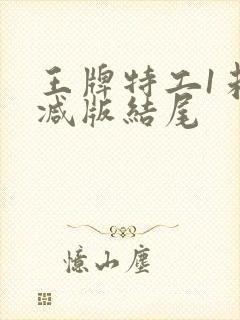 王牌特工1未
减版結尾
憶山塵